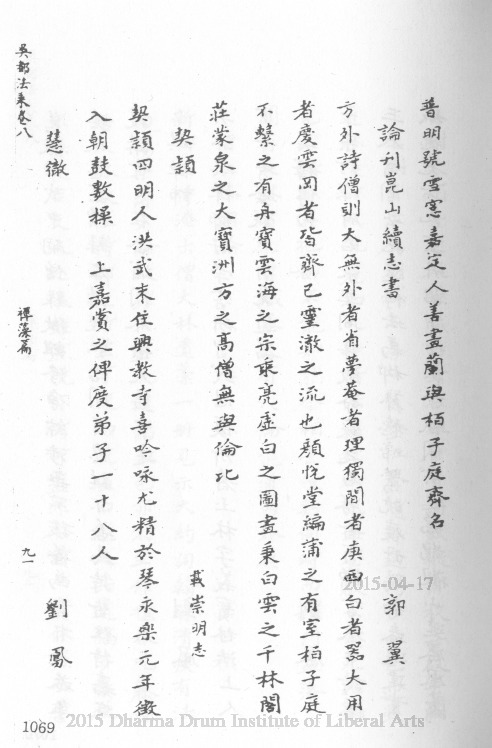 普明號雪窓嘉定人善畫蘭與栢子庭齊名
論刋崑山續志書 郭翼
方外詩僧則大無外者省夢菴者理獨閒者庚西白者噐大用
者慶雲岡者皆齊己靈澈之流也顏悅堂編蒲之有室栢子庭
不繫之有舟寶雲海之宗乘亮虛白之圖畫秉白雲之千林閣
莊蒙泉之大寶洲方之髙僧無與倫比
契穎 載崇明志
契穎四明人洪武末住興教寺喜吟咏尤精於琴永樂元年徵
入朝鼓數操 上嘉賞之俾度弟子一十八人
慧徹 劉鳳
吳都法乘卷八
禪藻篇
九一
1069
2015-04-17
2015 Dharma Drum Institute of Liberal Arts